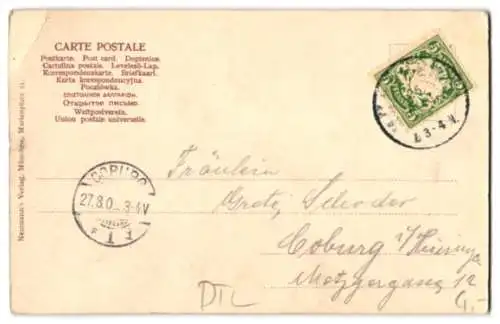 CARTE POSTALE
Postkarte. Post card. Dopisnice.
Cartolina postale. Levelező-Lap.
Korrespondenzkarte. Briefkaart.
Karta korespondencyjna.
Pocztówka.
Открытое письмо.
Weltpostverein.
Union postale universelle.
Neumann's Verlag, München, Marienplatz
3-4.N.
COBURG
27.8.0 3-4V
* 1 *
Fräulein
Grete Schoder
Coburg i/Thüringen
Metzgergasse 12
DTL
4,-